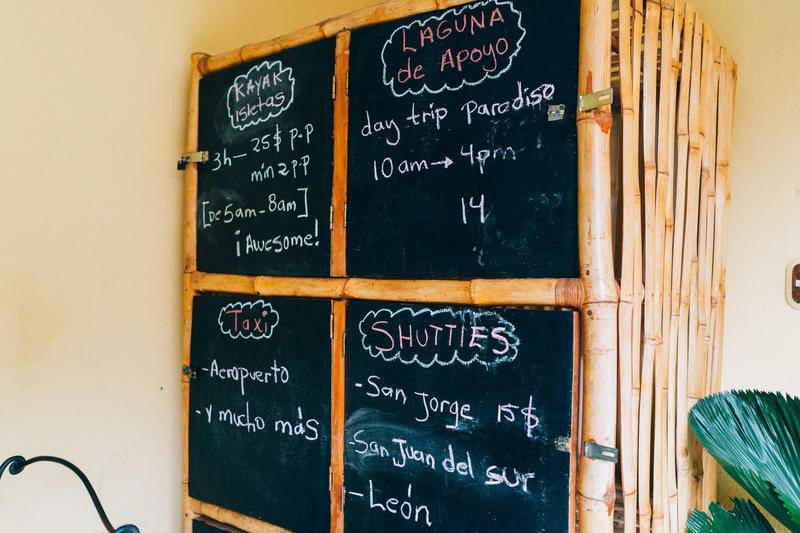 KAYAK
Isletas
3h— 25$ P.P
min 2 P.P
[De 5am - 8am]
¡Awesome!
LAGUNA
de Apoyo
day trip Paradiso
10am→4pm
14
Taxi
-Aeropuerto
-y mucho más
SHUTTIES
-San Jorge 15$
-San Juan del sur
-León